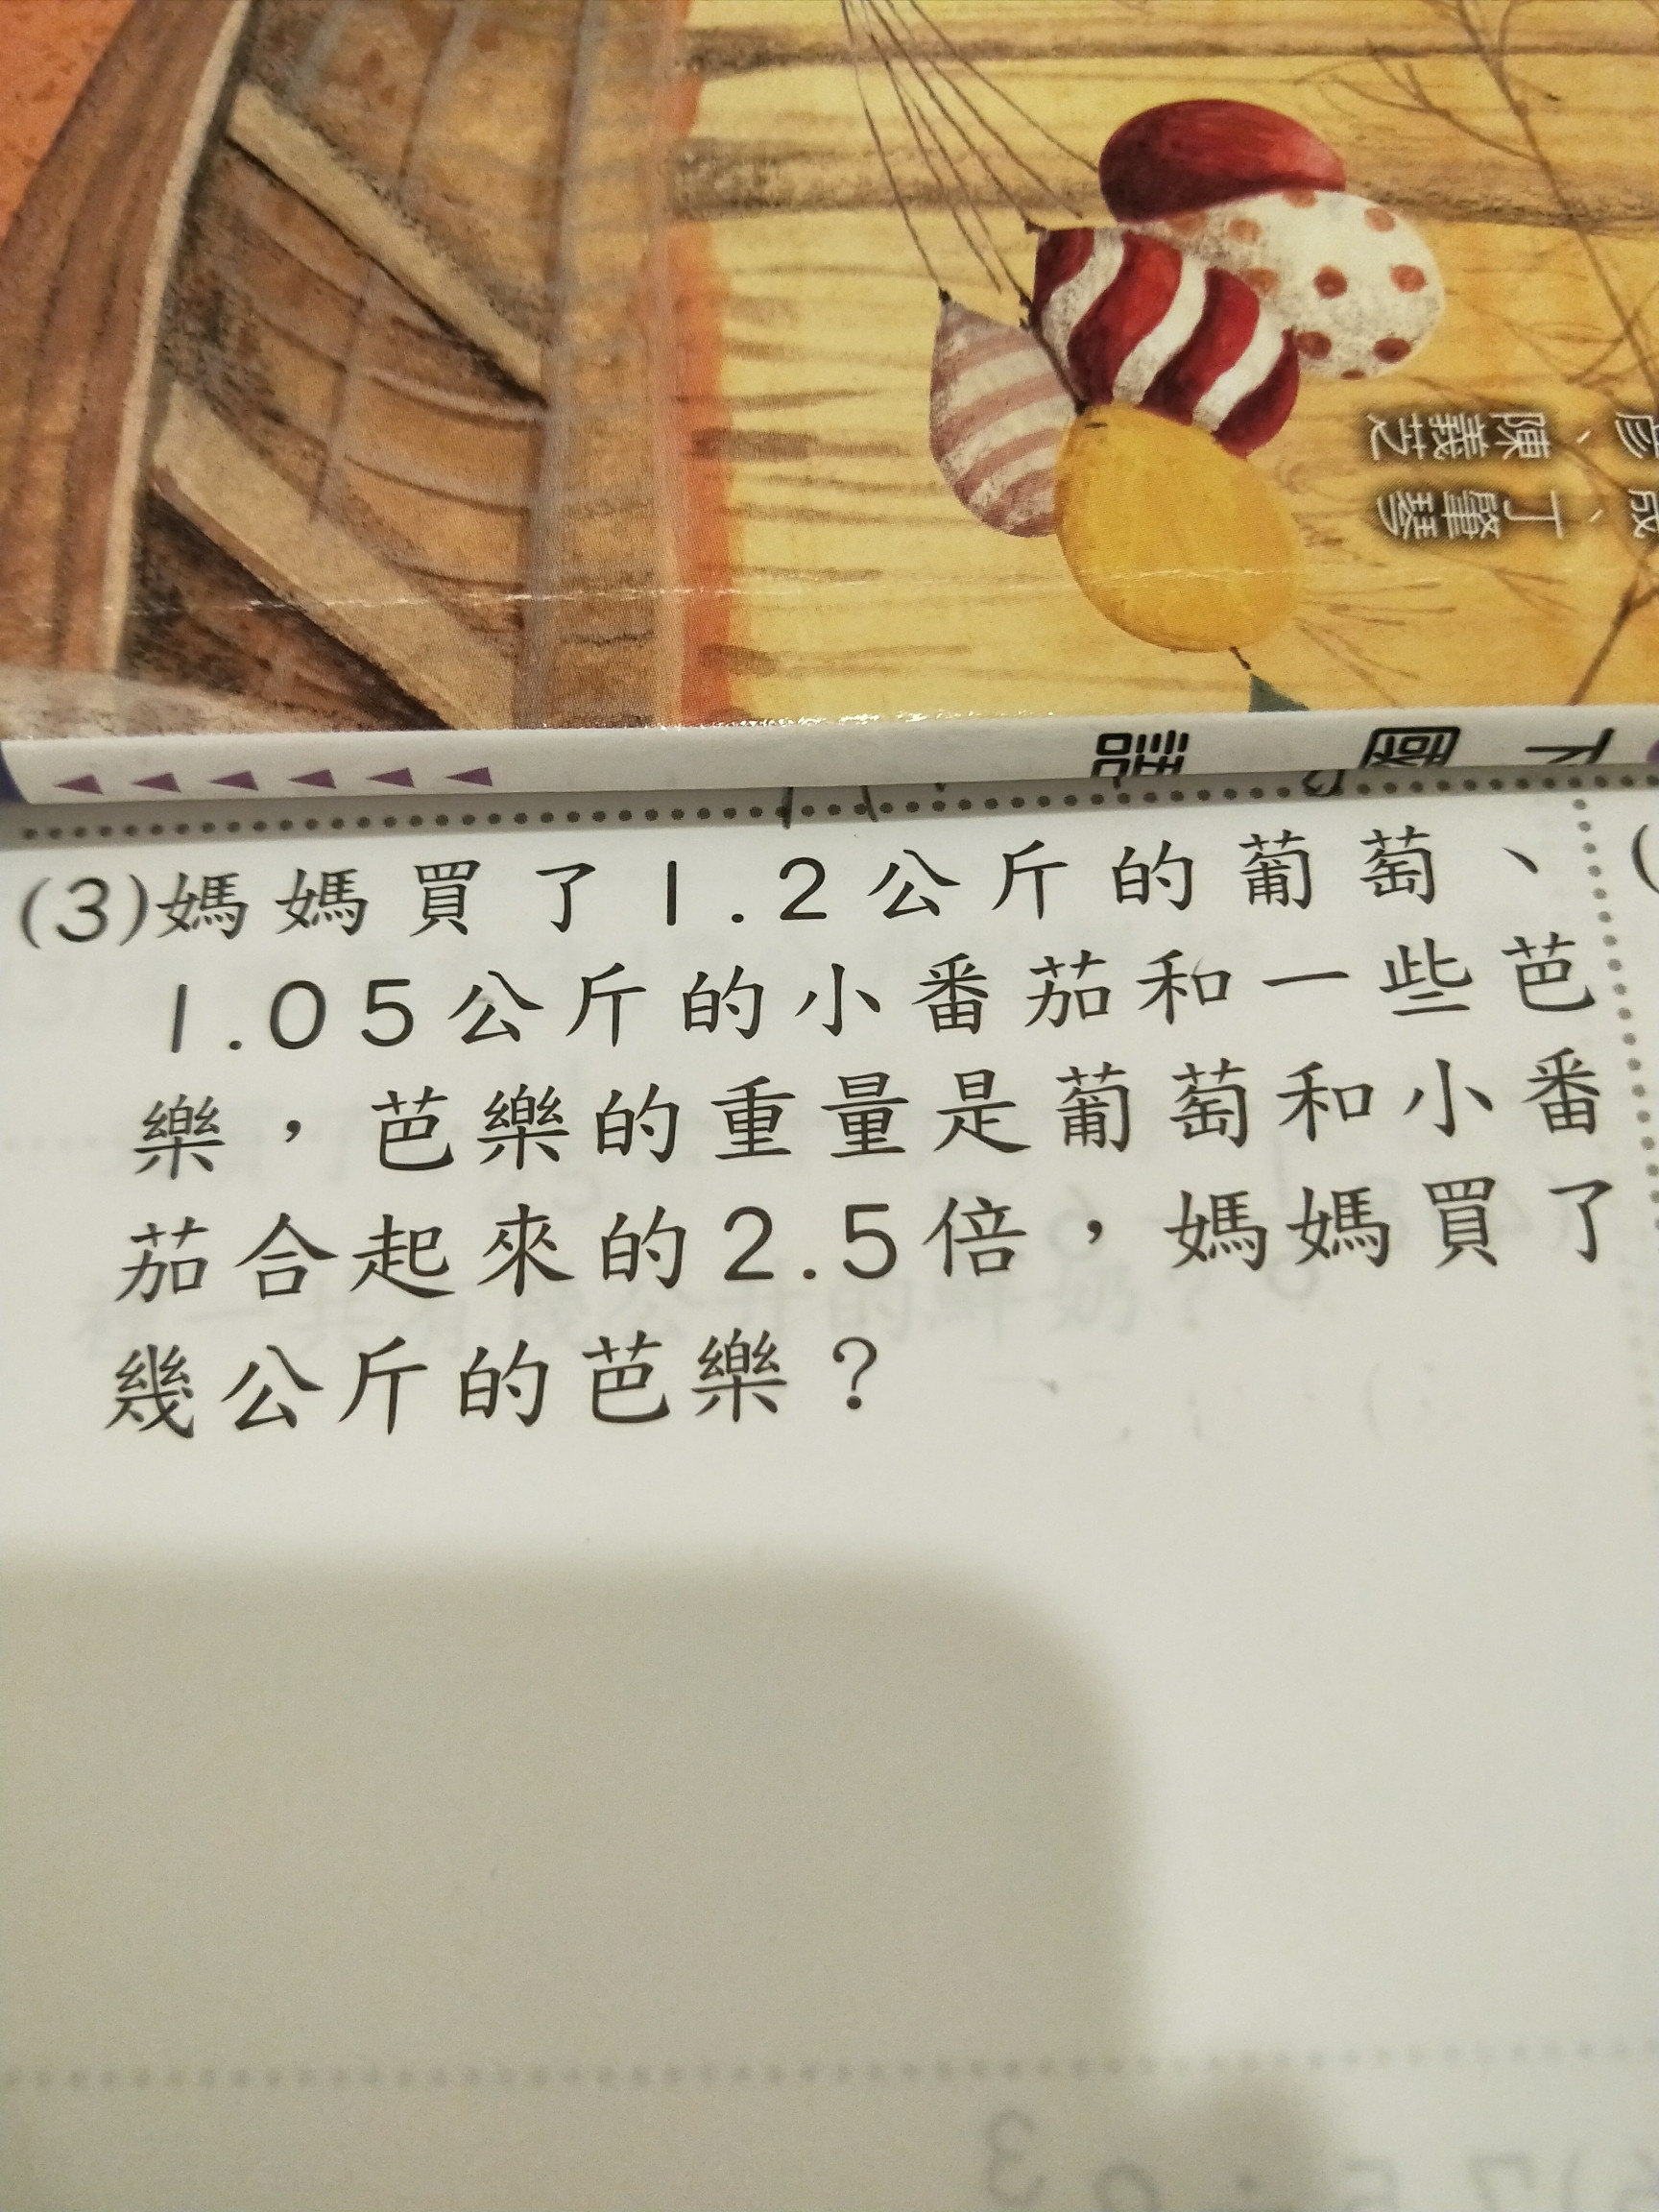 陳義芝
丁肇琴
成
國語
下
(3)媽媽買了1.2公斤的葡萄、
1.05公斤的小番茄和一些芭
樂，芭樂的重量是葡萄和小番
茄合起來的2.5倍，媽媽買了
幾公斤的芭樂？